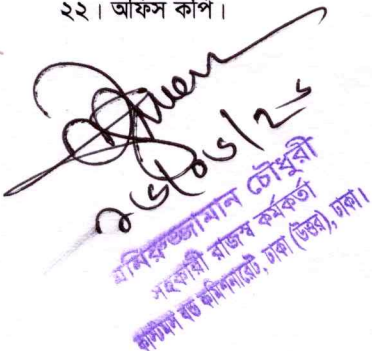 ২২। অফিস কপি।
২৬/০৬/২৫
মনিরুজ্জামান চৌধুরী
সহকারী রাজস্ব কর্মকর্তা
কাস্টমস বন্ড কমিশনারেট, ঢাকা (উত্তর), ঢাকা।